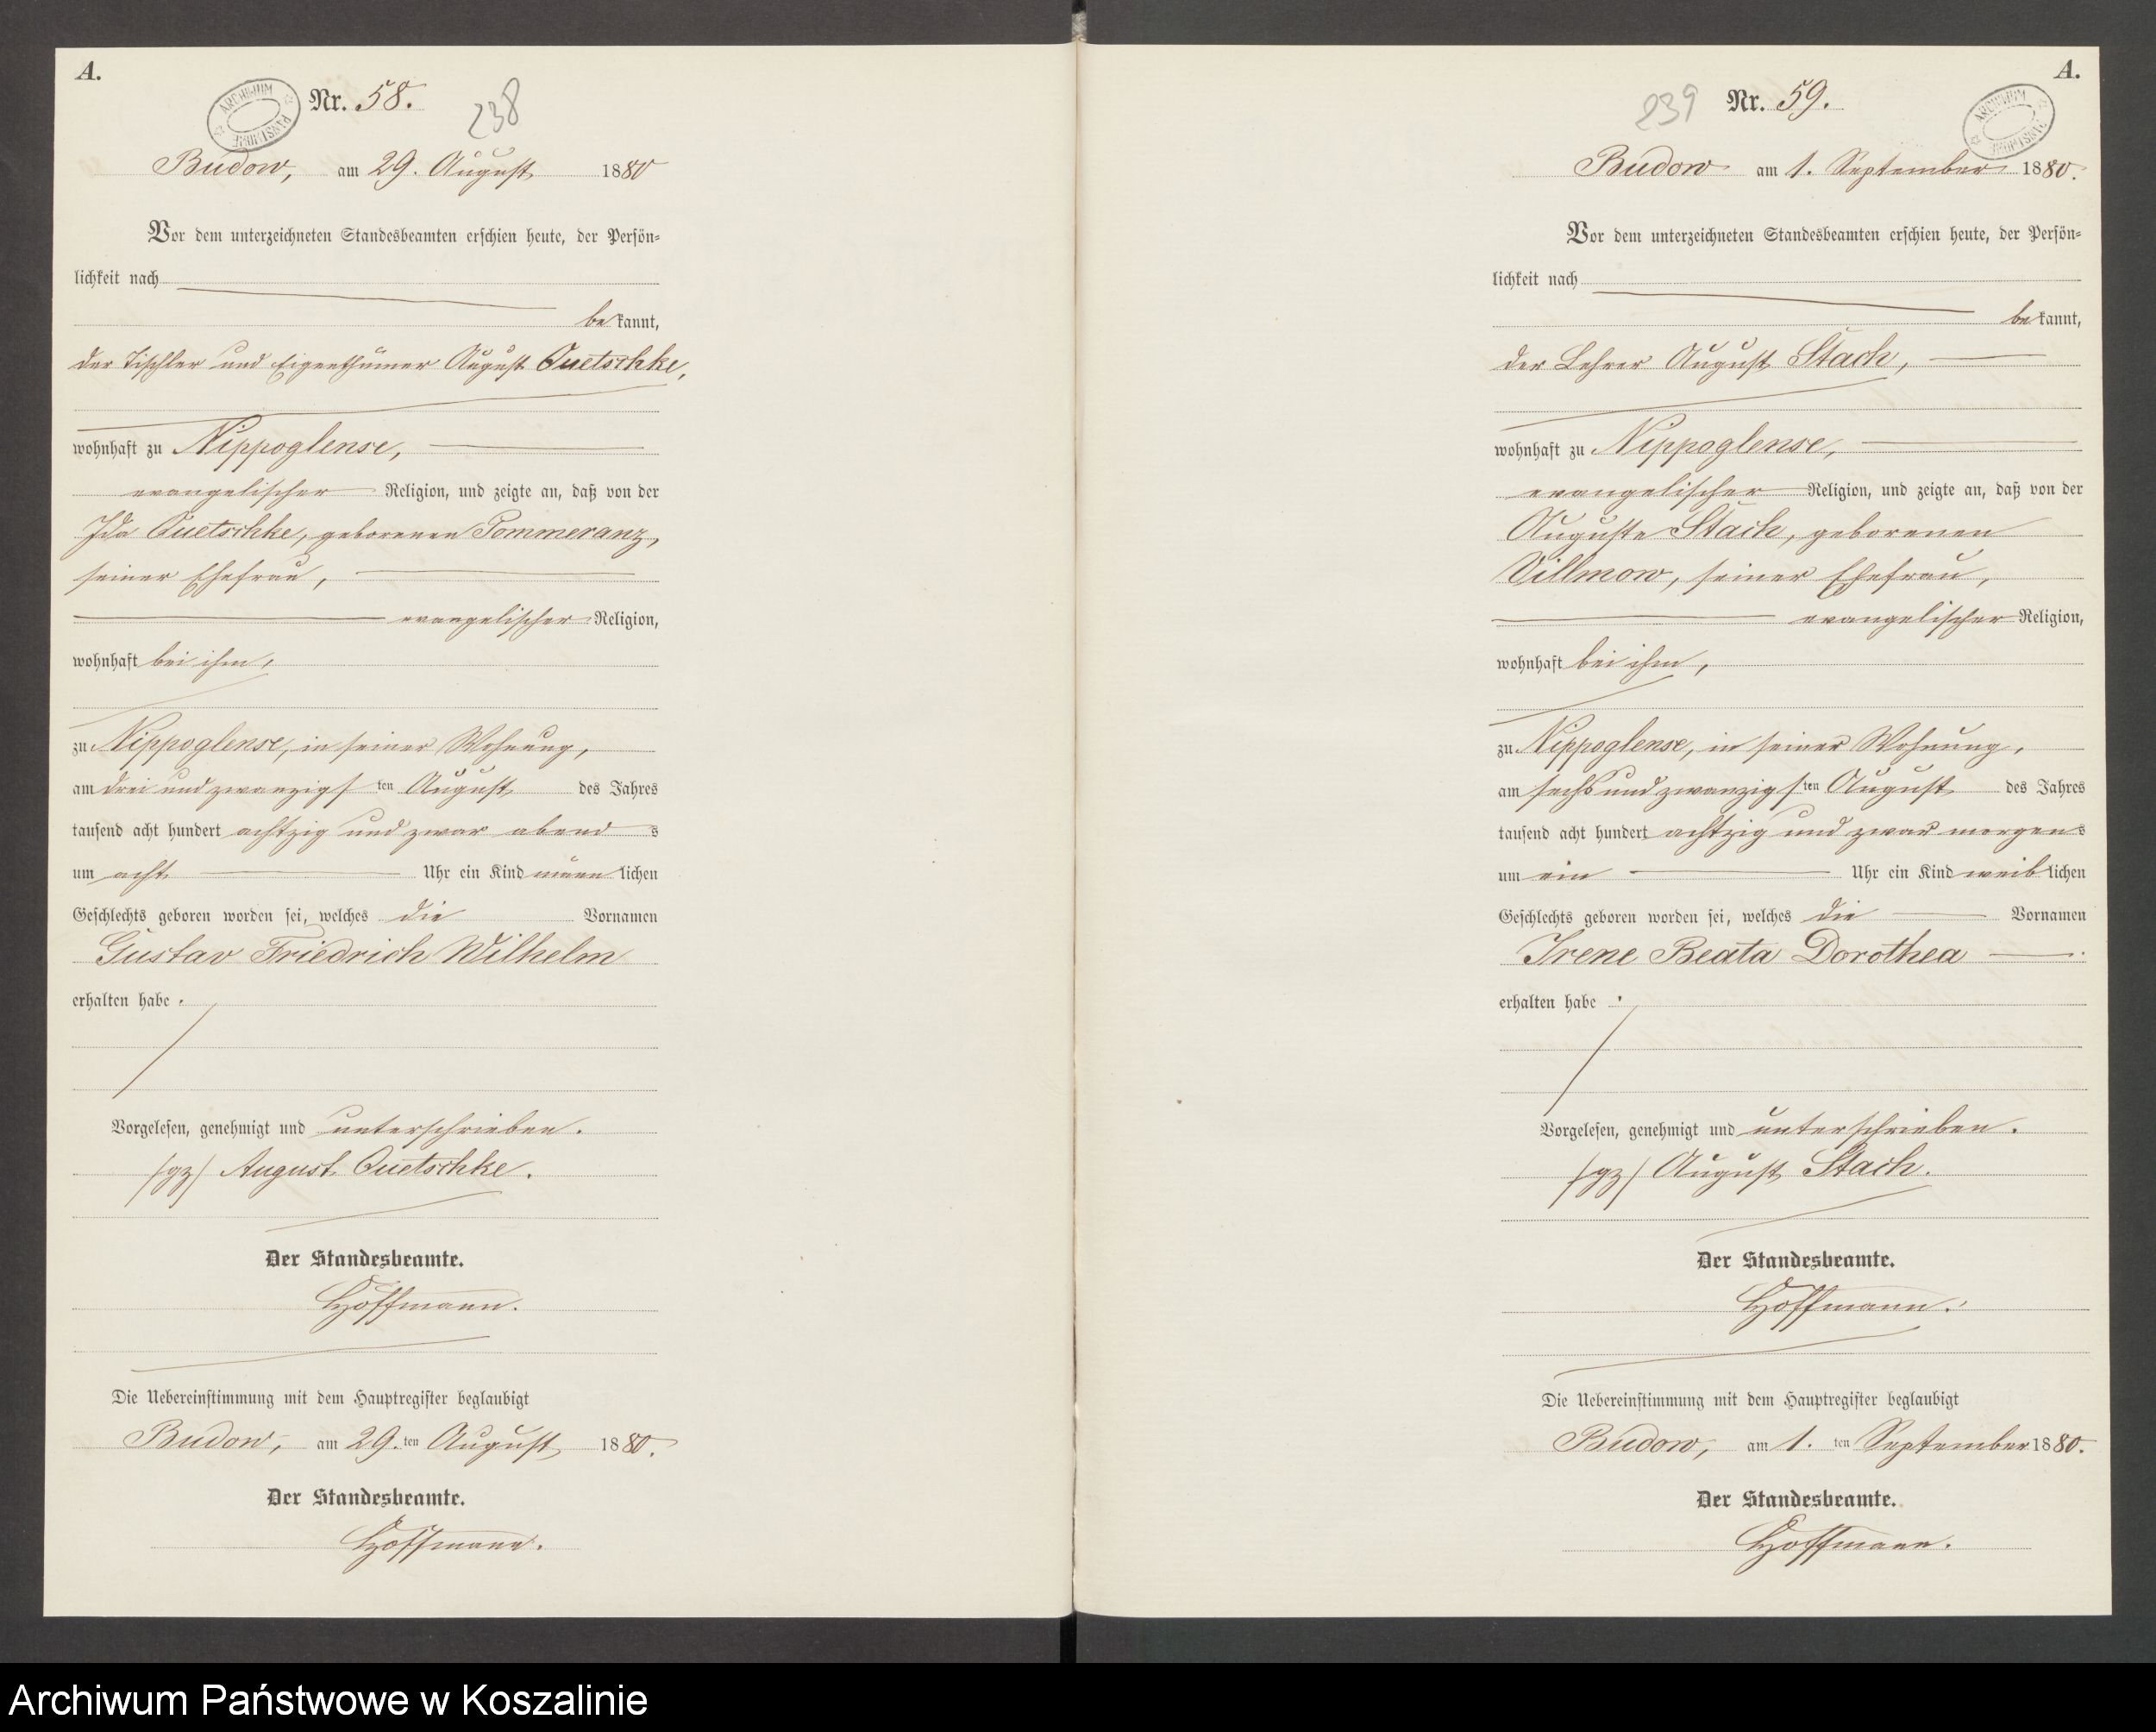 A.
ARCHIWUM PAŃSTWOWE
Nr. 58.
238
Budow, am 29. August 1880
Vor dem unterzeichneten Standesbeamten erschien heute, der Persön-
lichkeit nach
bekannt,
der Tischler und Eigenthümer August Quetschke,
wohnhaft zu Nippoglense,
evangelischer Religion, und zeigte an, daß von der
Ida Quetschke, geborenen Pommeranz,
seiner Ehefrau,
evangelischer Religion,
wohnhaft bei ihm,
zu Nippoglense, in seiner Wohnung,
am drei und zwanzigsten August des Jahres
tausend acht hundert achtzig und zwar abends
um acht Uhr ein Kind männlichen
Geschlechts geboren worden sei, welches die Vornamen
Gustav Friedrich Wilhelm
erhalten habe.
Vorgelesen, genehmigt und unterschrieben.
/gz/ August Quetschke.
Der Standesbeamte.
Hoffmann.
Die Uebereinstimmung mit dem Hauptregister beglaubigt
Budow, am 29.ten August 1880.
Der Standesbeamte.
Hoffmann.
A.
239
Nr. 59.
ARCHIWUM PAŃSTWOWE
Budow am 1. September 1880.
Vor dem unterzeichneten Standesbeamten erschien heute, der Persön-
lichkeit nach
bekannt,
der Lehrer August Stach,
wohnhaft zu Nippoglense,
evangelischer Religion, und zeigte an, daß von der
Auguste Stach, geborenen
Villmow, seiner Ehefrau,
evangelischer Religion,
wohnhaft bei ihm,
zu Nippoglense, in seiner Wohnung,
am sechs und zwanzigsten August des Jahres
tausend acht hundert achtzig und zwar morgens
um ein Uhr ein Kind weiblichen
Geschlechts geboren worden sei, welches die Vornamen
Irene Beata Dorothea
erhalten habe.
Vorgelesen, genehmigt und unterschrieben.
/gz/ August Stach.
Der Standesbeamte.
Hoffmann.
Die Uebereinstimmung mit dem Hauptregister beglaubigt
Budow, am 1. ten September 1880.
Der Standesbeamte.
Hoffmann.
Archiwum Państwowe w Koszalinie